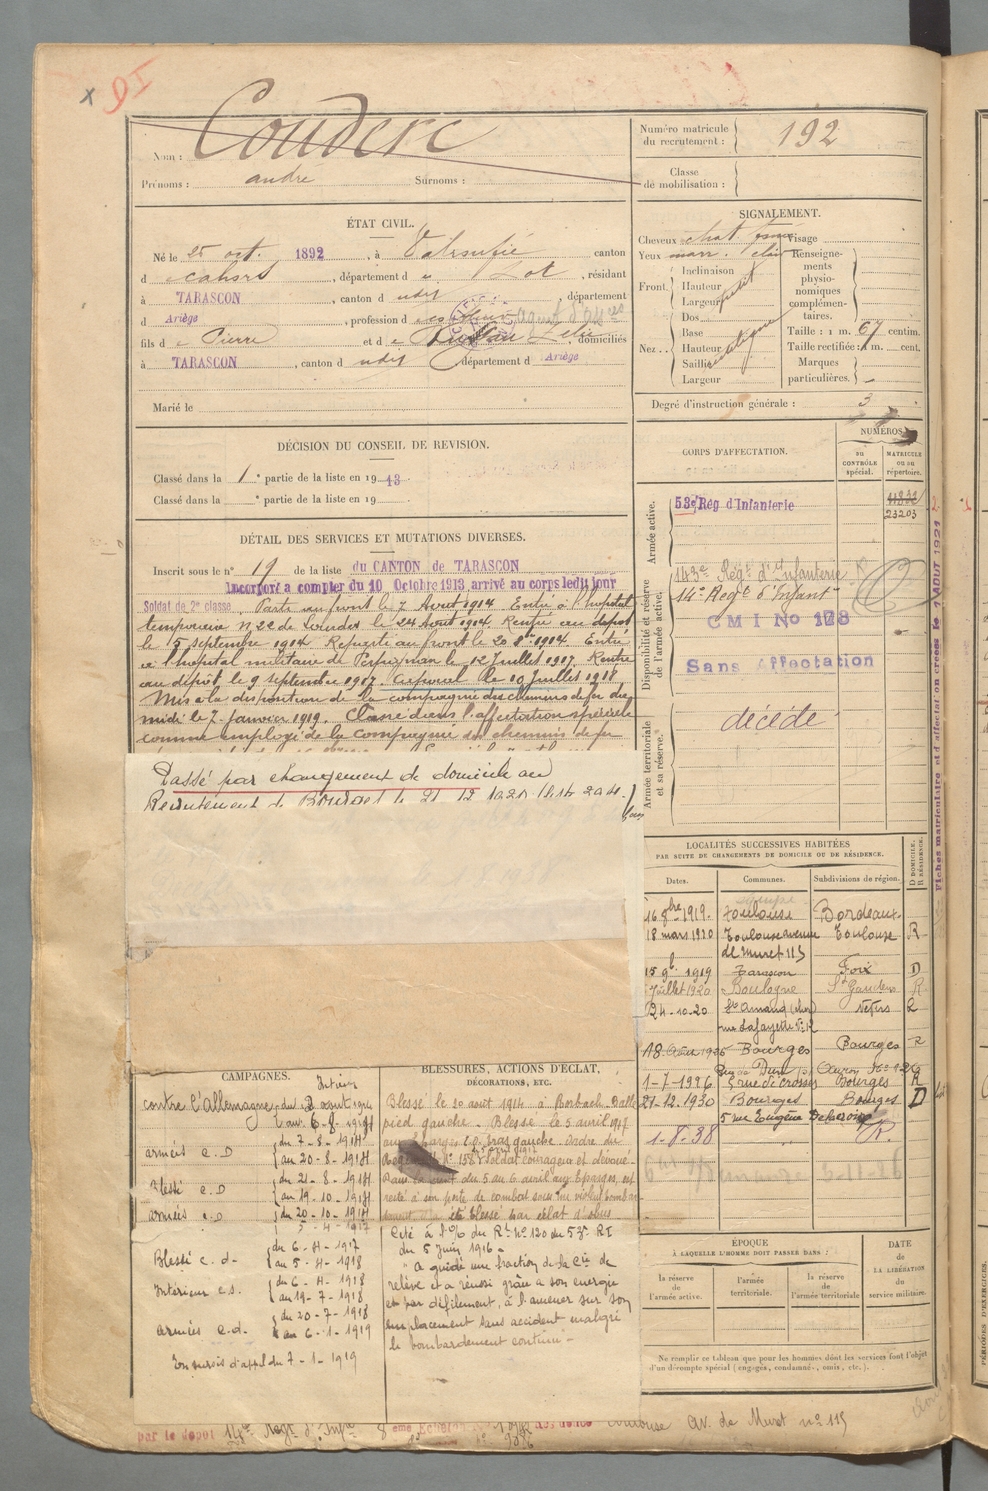 Couderc
Nom :
Prénoms : andré Surnoms :
Numéro matricule du recrutement : 192
Classe de mobilisation :
ÉTAT CIVIL.
Né le 25 oct. 1892, à canton
d Cahors, département d u Lot, résidant
à TARASCON, canton d udit, département
d Ariège, profession d
fils d e Pierre et d e domiciliés
à TARASCON, canton d udit département d Ariège
Marié le
SIGNALEMENT.
Cheveux chat Visage
Yeux marr. clair
Front. Inclinaison
Hauteur
Largeur
Nez.. Dos
Base
Hauteur
Saillie
Largeur
Renseignements physionomiques complémentaires.
Taille : 1 m. 67 centim.
Taille rectifiée : 1 m. cent.
Marques particulières.
Degré d'instruction générale : 3
DÉCISION DU CONSEIL DE REVISION.
Classé dans la 1e partie de la liste en 1913.
Classé dans la e partie de la liste en 19
DÉTAIL DES SERVICES ET MUTATIONS DIVERSES.
Inscrit sous le n° 19 de la liste du CANTON de TARASCON
Incorporé a compter du 10 Octobre 1913 arrivé au corps ledit jour
Soldat de 2e classe. Parti au front le 7 Aout 1914 Entré à l'hopital
temporaire n 22 de Lourdes le 24 Aout 1914 Rentré au dépot
le 15 septembre 1914 Reparti au front le 20 8bre 1914. Entré
à l'hopital militaire de Perpignan le 12 Juillet 1917. Rentré
au dépôt le 9 septembre 1917. Caporal le 10 Juillet 1918
Mis à la disposition de la compagnie des chemins de fer du
midi le 7 Janvier 1919. Classé dans l'affectation spéciale
comme employé de la Compagnie des chemins de fer
Passé par changement de domicile au
Recrutement de Bourges le 21 12 1930
CORPS D'AFFECTATION.
NUMÉROS
au CONTRÔLE spécial.
MATRICULE ou au répertoire.
Armée active.
53e Rég d'Infanterie
23203
Disponibilité et réserve de l'armée active.
143e Régt d'Infanterie
14e Régt d'Infant
C M I No 178
Sans Affectation
Armée territoriale et sa réserve.
décédé
Fiches matriculaire et d'affectation créées le 1 AOUT 1921
LOCALITÉS SUCCESSIVES HABITÉES
PAR SUITE DE CHANGEMENTS DE DOMICILE OU DE RÉSIDENCE.
Dates. Communes. Subdivisions de région. D DOMICILE. R RÉSIDENCE.
16 8bre 1919. Toulouse Bordeaux
18 mars 1920 Toulouse avenue de Muret 115 Toulouse R
15 9b 1919 Tarascon Foix D
Juillet 1920 Boulogne St Gaudens R
24-10-20 St Amand (cher) rue Lafayette Nevers R
Bourges Bourges R
1-7-1926 5 rue de Crosses Bourges R
21-12.1930 Bourges Bourges D
5 rue Eugène Delacroix
1-8-38 R.
CAMPAGNES.
contre l'Allemagne Intérieur du 2 aout 1914
au 6-8-1914
armées c. D du 7-8-1914
au 20-8-1914
Blessé c. D du 21-8-1914
au 19-10-1914
armées c. D du 20-10-1914
5-4-1917
Blessé c. d. du 6-4-1917
au 5-4-1918
Intérieur c.s. du 6-4-1918
au 19-7-1918
armées c.d. du 20-7-1918
au 6-1-1919
En sursis d'appel du 7-1-1919
BLESSURES, ACTIONS D'ÉCLAT,
DÉCORATIONS, ETC.
Blessé le 20 aout 1914 à Rorbach, Balle
pied gauche. Blessé le 5 avril 1917
aux Eparges E.O. bras gauche. Ordre du
Régiment N° 158 Soldat courageux et dévoué.
Dans la nuit du 5 au 6 avril aux Eparges, est
resté à son poste de combat sous un violent bombar-
dement, a été blessé par éclat d'obus
Cité à l'O/ du Rt N° 120 du 53e RI
du 5 Juin 1916.
"a guidé une fraction de la Cie de
relève et a réussi grâce à son énergie
et par défilement, à l'amener sur son
emplacement sans accident malgré
le bombardement continu"
ÉPOQUE
À LAQUELLE L'HOMME DOIT PASSER DANS :
la réserve de l'armée active.
l'armée territoriale.
la réserve de l'armée territoriale
DATE de LA LIBÉRATION du service militaire.
Ne remplir ce tableau que pour les hommes dont les services font l'objet
d'un décompte spécial (engagés, condamnés, omis, etc.).
PÉRIODES D'EXERCICES.
par le depot 14e Regt d'Infie 8 eme Echelon Toulouse av. de Muret n° 115